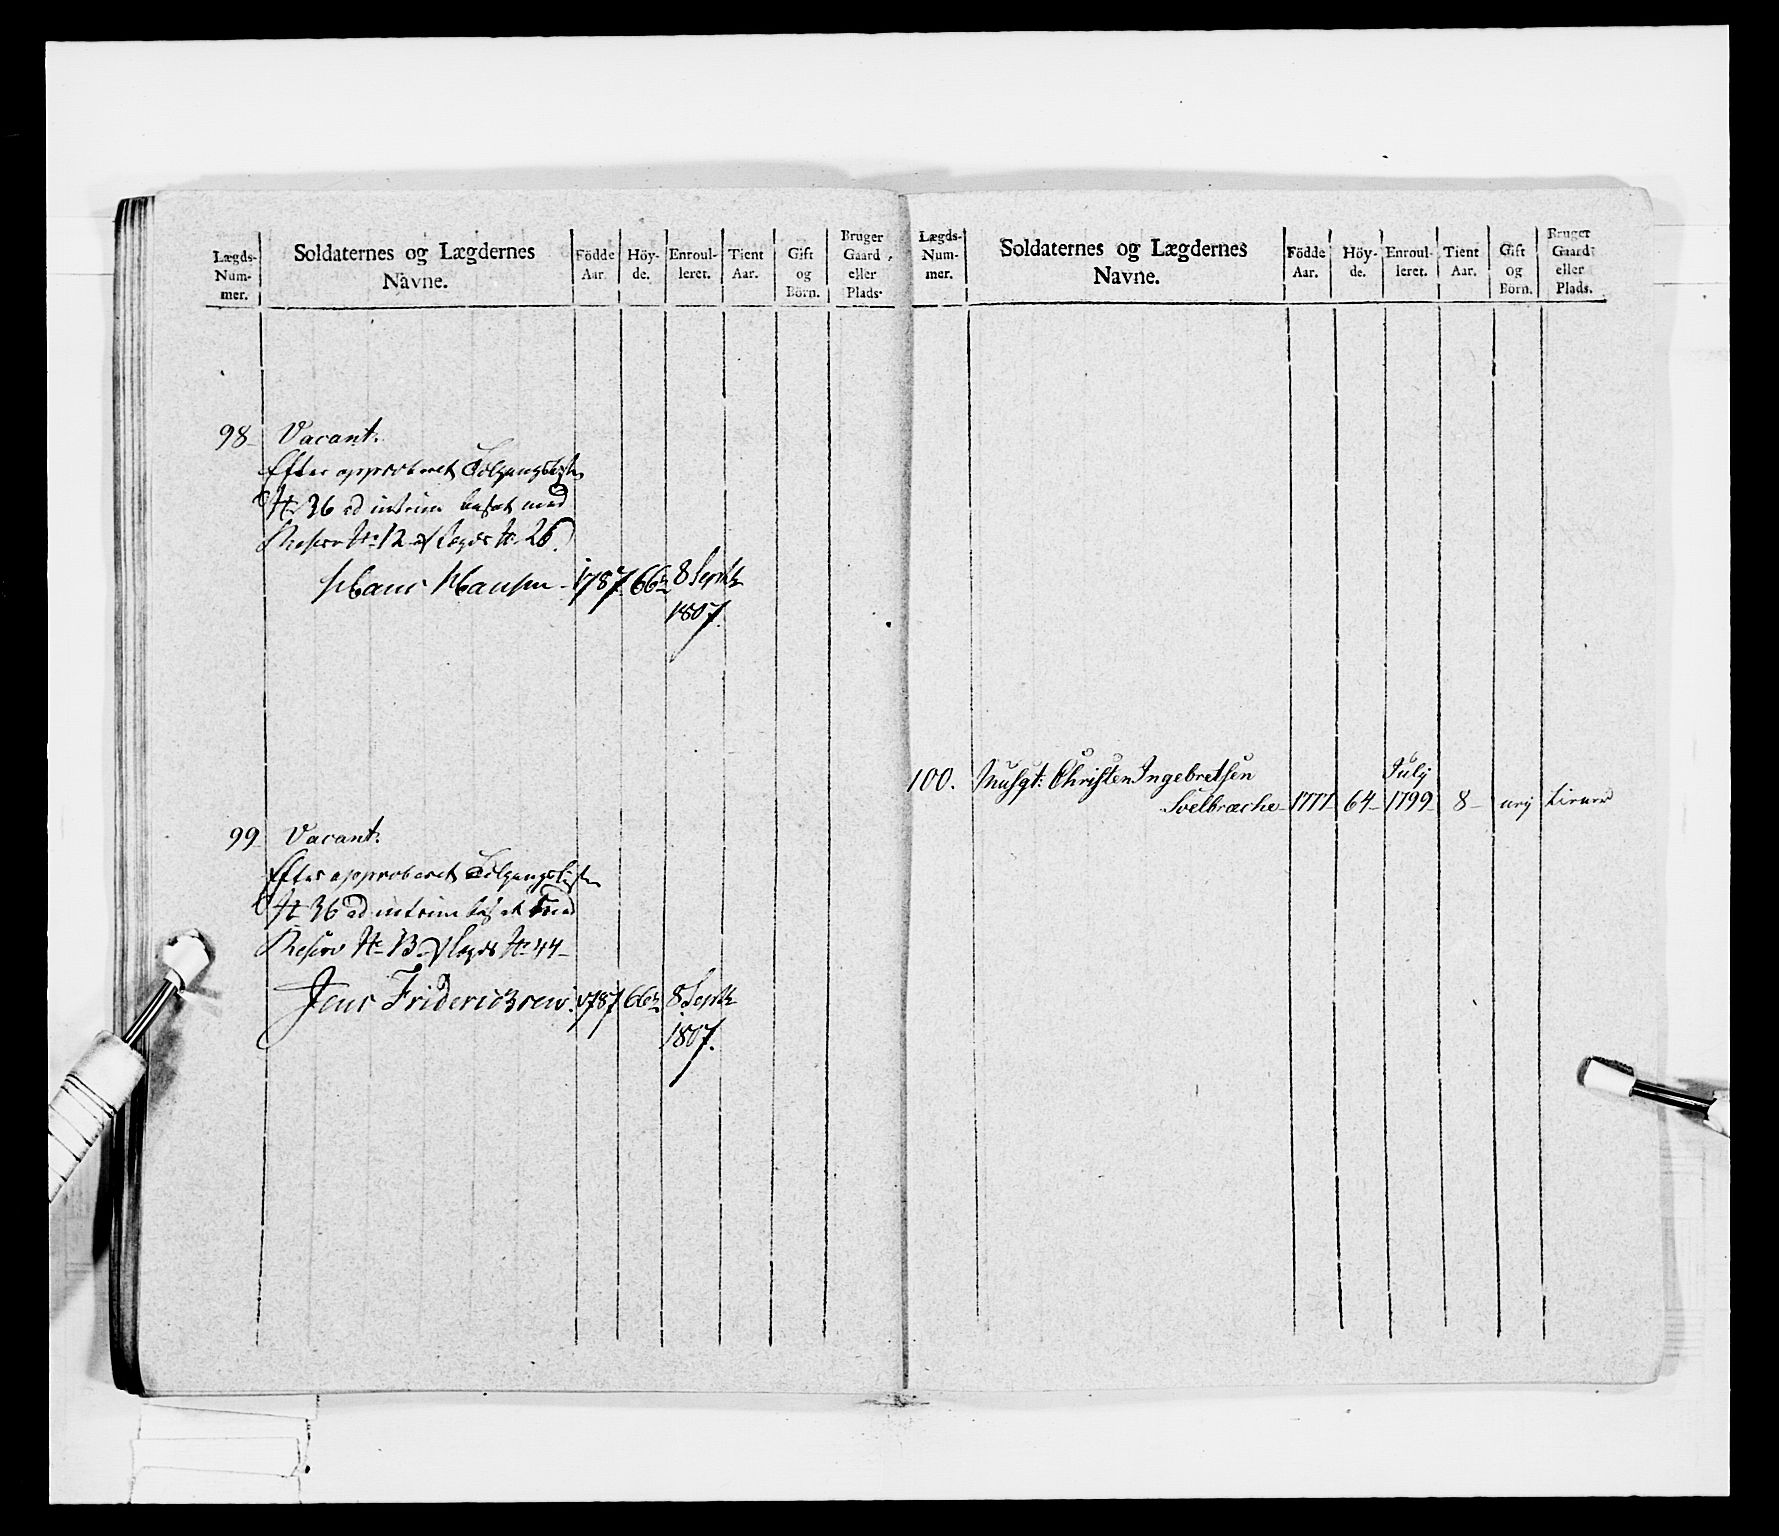 Lægds-
Num-
mer.
Soldaternes og Lægdernes
Navne.
Födde
Aar.
Höy-
de.
Enroul-
leret.
Tient
Aar.
Gift
og
Börn.
Bruger
Gaard
eller
Plads.
98- Vacant.
Efter approberet Tilgangsliste
No 36 ad intrim besat med
Reserv No 12 af Lægds No 26.
Hans Hansen - 1787 66 8 Septbr
1807.
99- Vacant.
Efter approberet Tilgangsliste
No 36 ad intrim besat med
Reserv No 13 af Lægds No 44-
Jens Friderichsen. 1787 66 8 Septbr
1807.
Lægds-
Num-
mer.
Soldaternes og Lægdernes
Navne.
Födde
Aar.
Höy-
de.
Enroul-
leret.
Tient
Aar.
Gift
og
Börn.
Bruger
Gaard
eller
Plads.
100. Musqt: Christen Ingebretsen July
Svelbræche - 1777- 64- 1799- 8- ney tiener